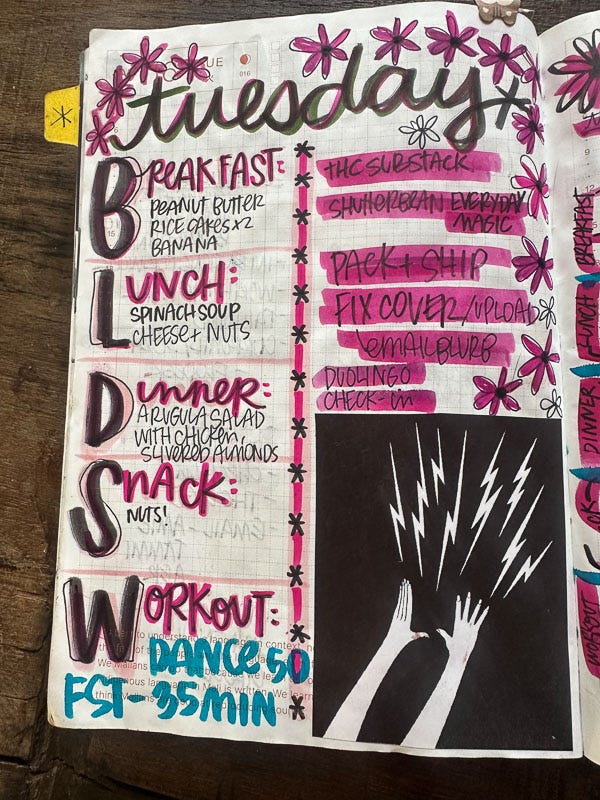 tuesday
BREAKFAST:
PEANUT BUTTER
RICE CAKES x2
BANANA
LUNCH:
SPINACH SOUP
CHEESE + NUTS
DINNER:
ARUGULA SALAD
WITH CHICKEN,
SLIVERED ALMONDS
SNACK:
NUTS!
WORKOUT:
DANCE 50
FST - 35 MIN
THC SUBSTACK
EVERYDAY
MAGIC
PACK + SHIP
FIX COVER/UPLOAD
EMAIL BLURB
DUOLINGO
CHECK-in
BREAKFAST
LUNCH
DINNER
WORKOUT